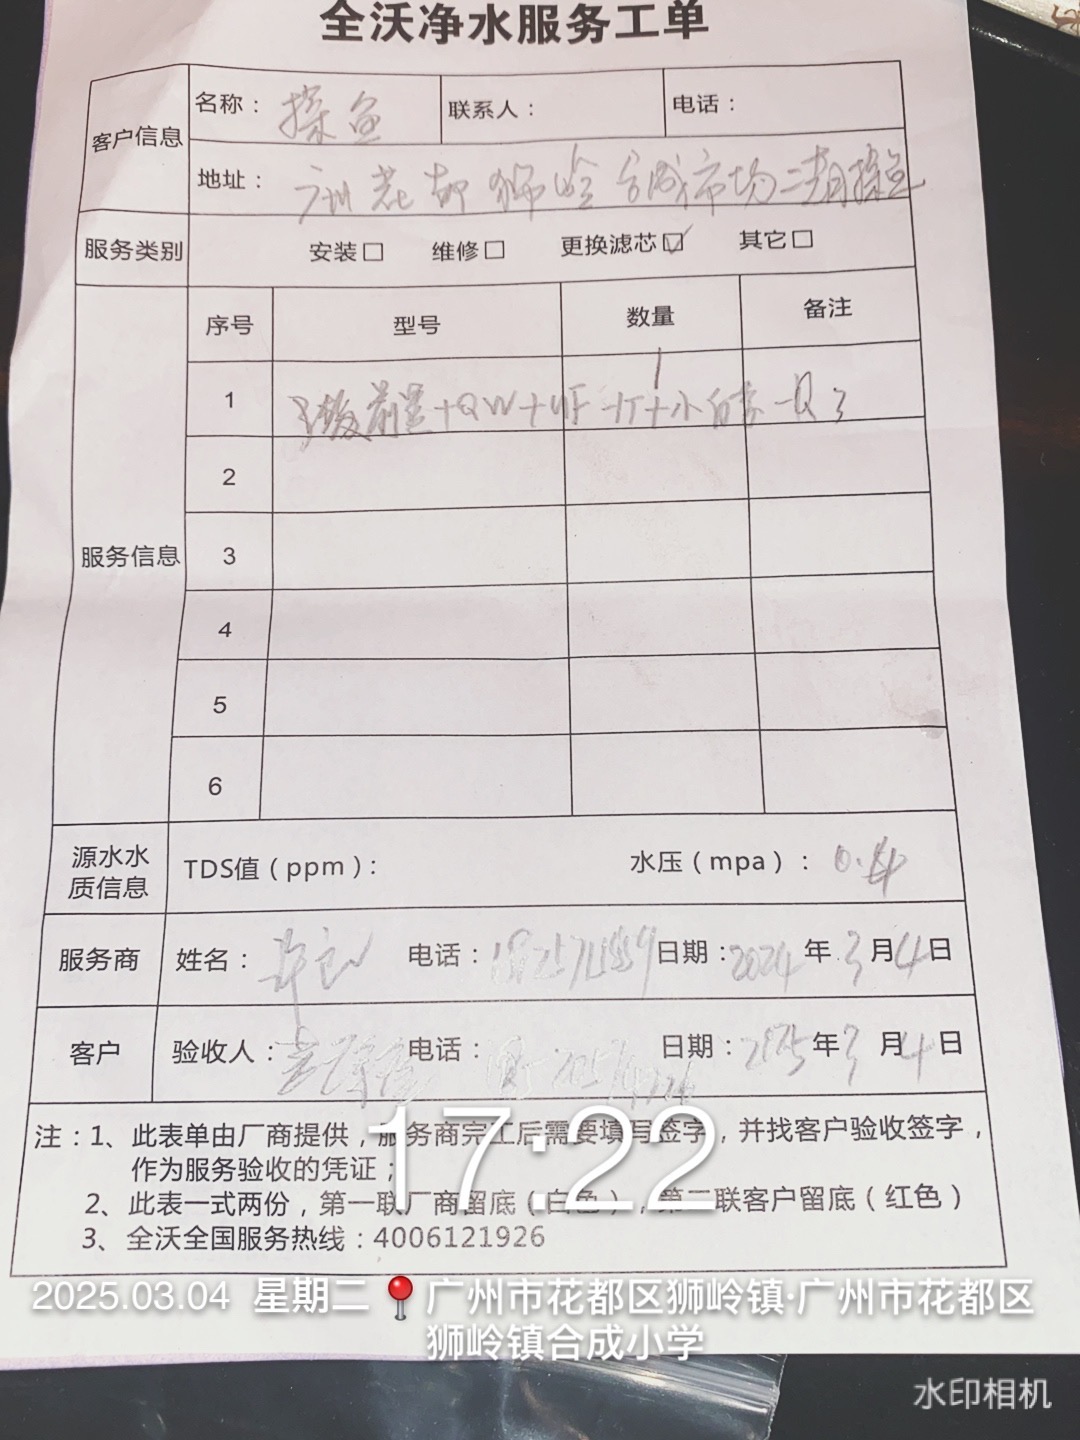 全沃净水服务工单
客户信息
名称： 探鱼 联系人： 电话：
地址： 广州花都狮岭合成市场二楼探鱼
服务类别 安装□ 维修□ 更换滤芯☑ 其它□
服务信息
序号 型号 数量 备注
1 3级前置+QW+UF 1
2
3
4
5
6
源水水质信息 TDS值（ppm）： 水压（mpa）： 0.4
服务商 姓名： 电话： 日期：2024年3月4日
客户 验收人： 电话： 日期：2025年3月4日
注：1、此表单由厂商提供，服务商完工后需要填写签字，并找客户验收签字，
作为服务验收的凭证；
2、此表一式两份，第一联厂商留底（白色），第二联客户留底（红色）
3、全沃全国服务热线：4006121926
17:22
2025.03.04 星期二 广州市花都区狮岭镇·广州市花都区
狮岭镇合成小学
水印相机